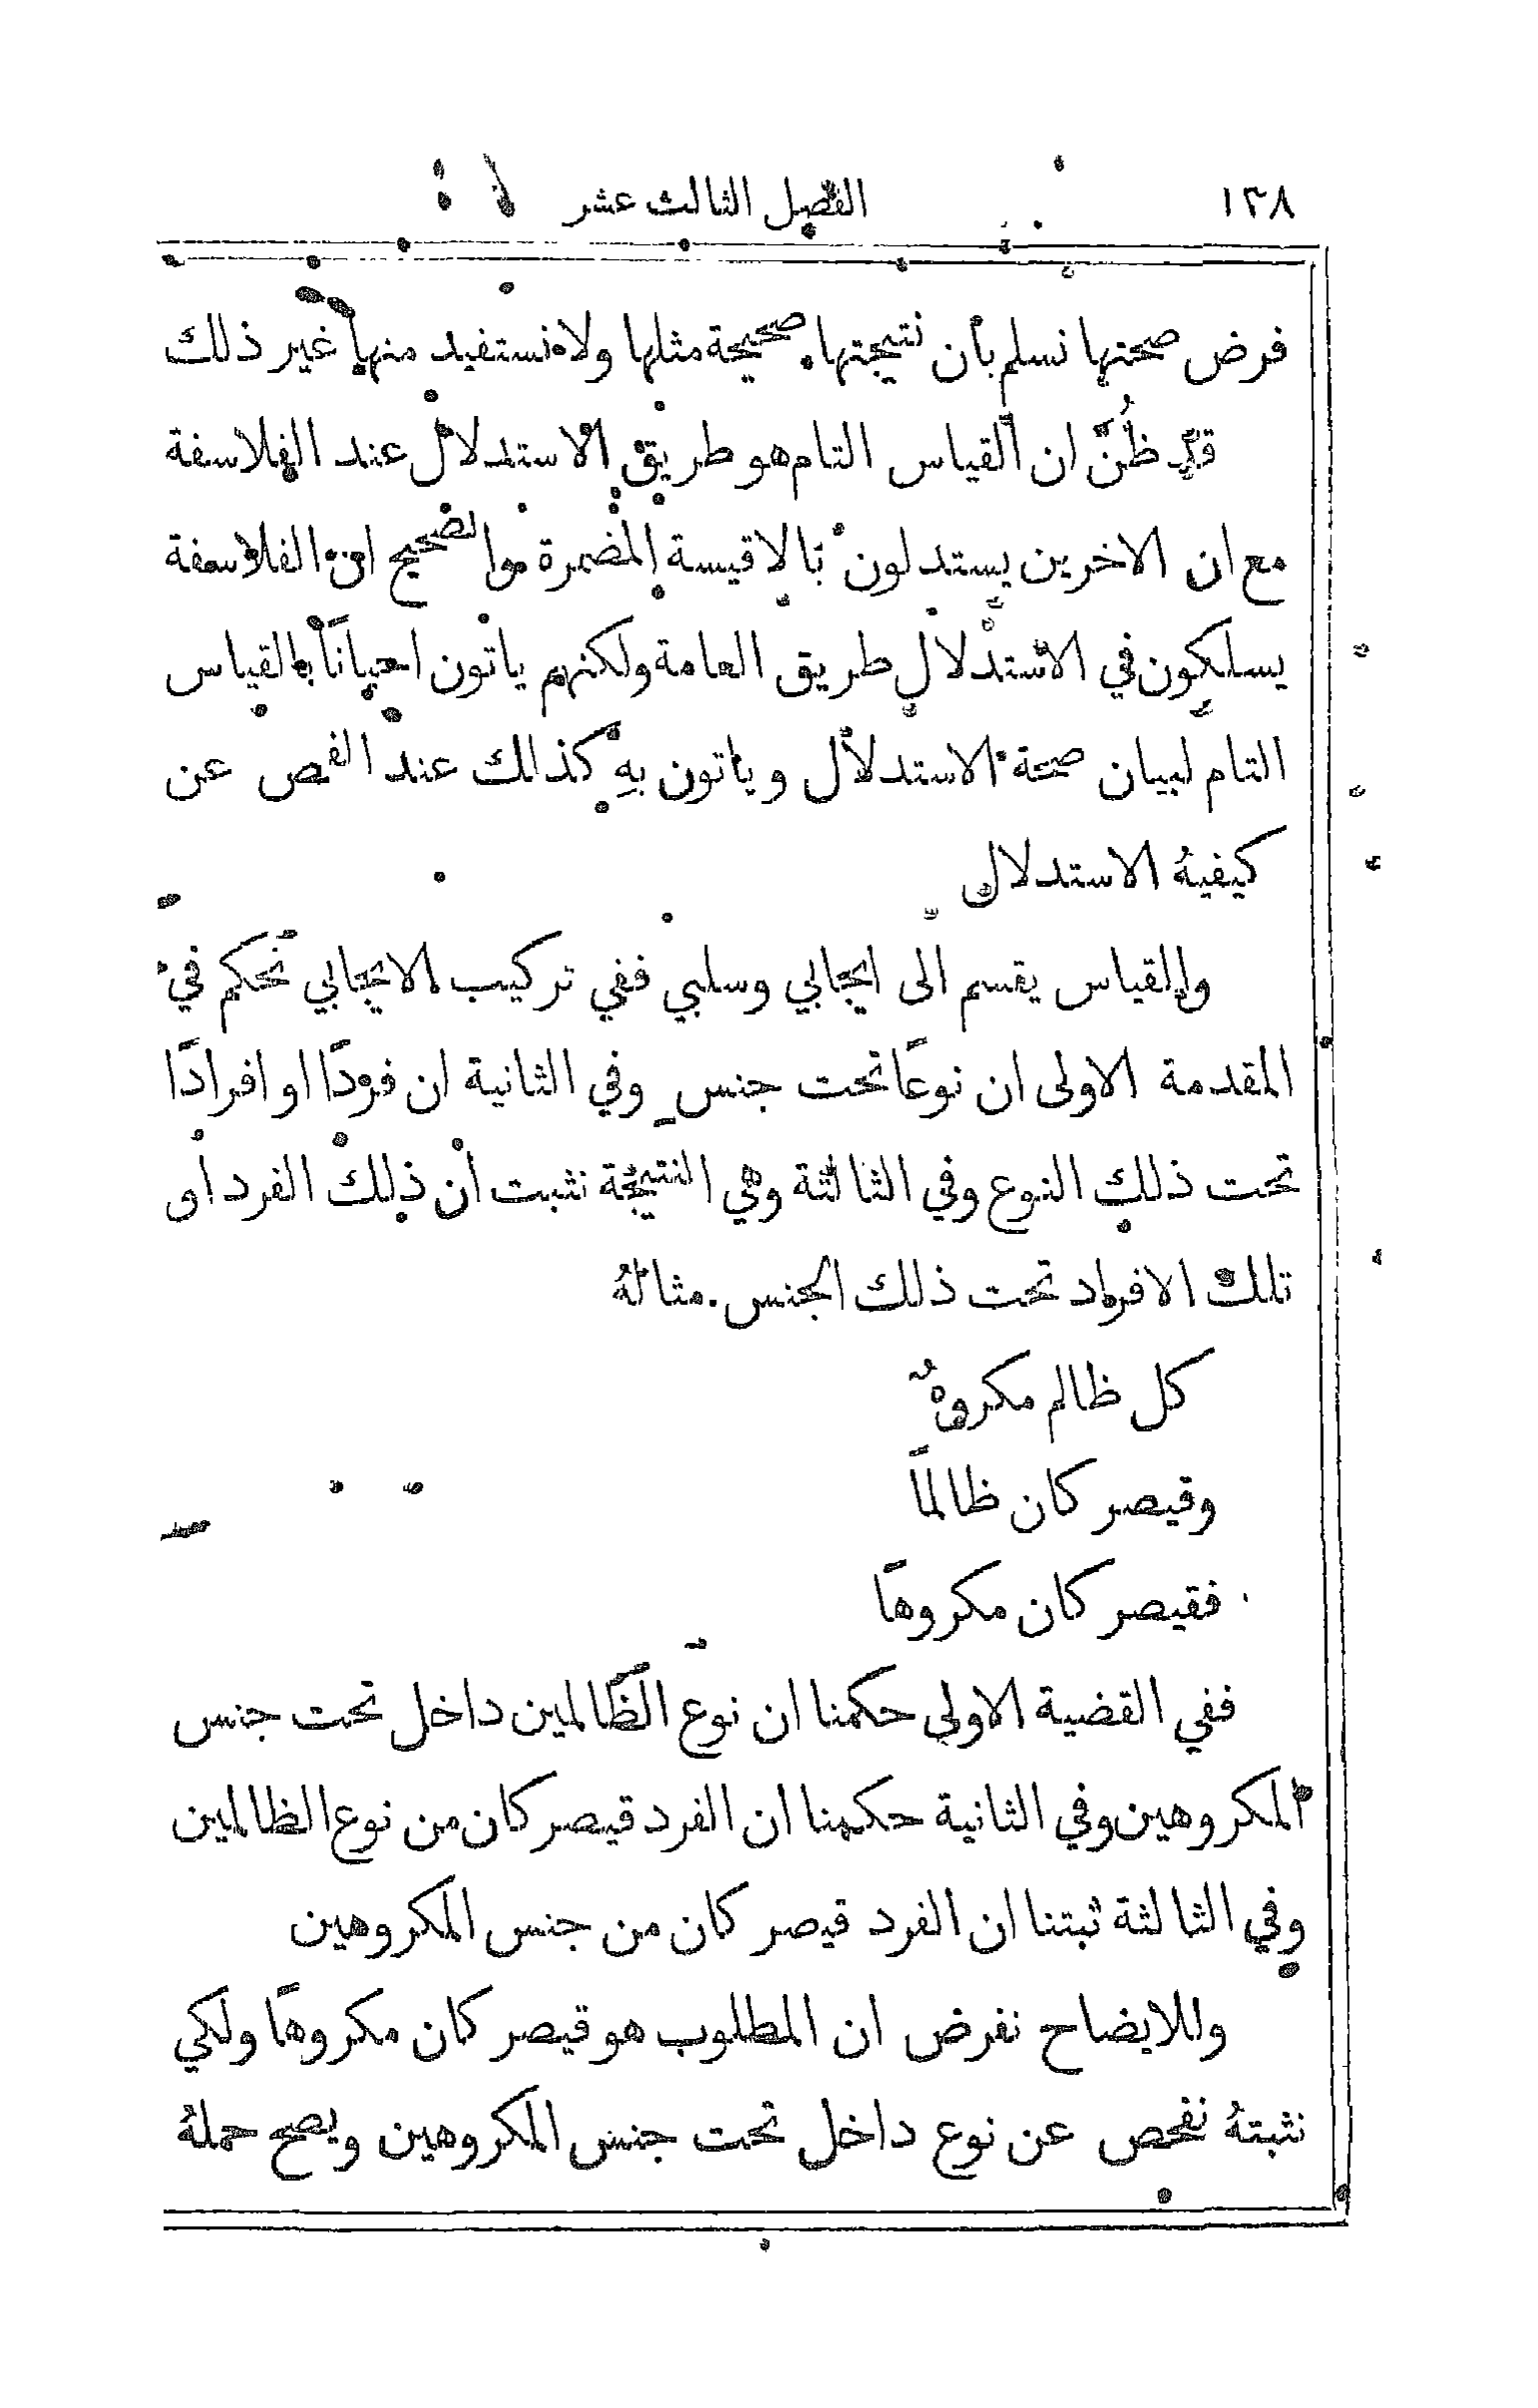 ١٣٨ الفصل الثالث عشر
فرض صحتها نسلم بأن نتيجتها صحيحة مثلها ولا نستفيد منها غير ذلك
قد ظُنَّ ان القياس التام هو طريق الاستدلال عند الفلاسفة
مع ان الاخرين يستدلون بالاقيسة المضمرة والصحيح ان الفلاسفة
يسلكون في الاستدلال طريق العامة ولكنهم ياتون احيانًا بالقياس
التام لبيان صحة الاستدلال وياتون بهِ كذلك عند الفحص عن
كيفية الاستدلال
والقياس يقسم الى ايجابي وسلبي ففي تركيب الايجابي نحكم في
المقدمة الاولى ان نوعًا تحت جنسٍ وفي الثانية ان فردًا او افرادًا
تحت ذلك النوع وفي الثالثة وهي النتيجة نثبت أن ذلك الفرد او
تلك الافراد تحت ذلك الجنس. مثالهُ
كل ظالم مكروهٌ
وقيصر كان ظالمًا
فقيصر كان مكروهًا
ففي القضية الاولى حكمنا ان نوع الظالمين داخل تحت جنس
المكروهين وفي الثانية حكمنا ان الفرد قيصر كان من نوع الظالمين
وفي الثالثة ثبتنا ان الفرد قيصر كان من جنس المكروهين
وللايضاح نفرض ان المطلوب هو قيصر كان مكروهًا ولكي
نثبتهُ نفحص عن نوع داخل تحت جنس المكروهين ويصح حملهُ